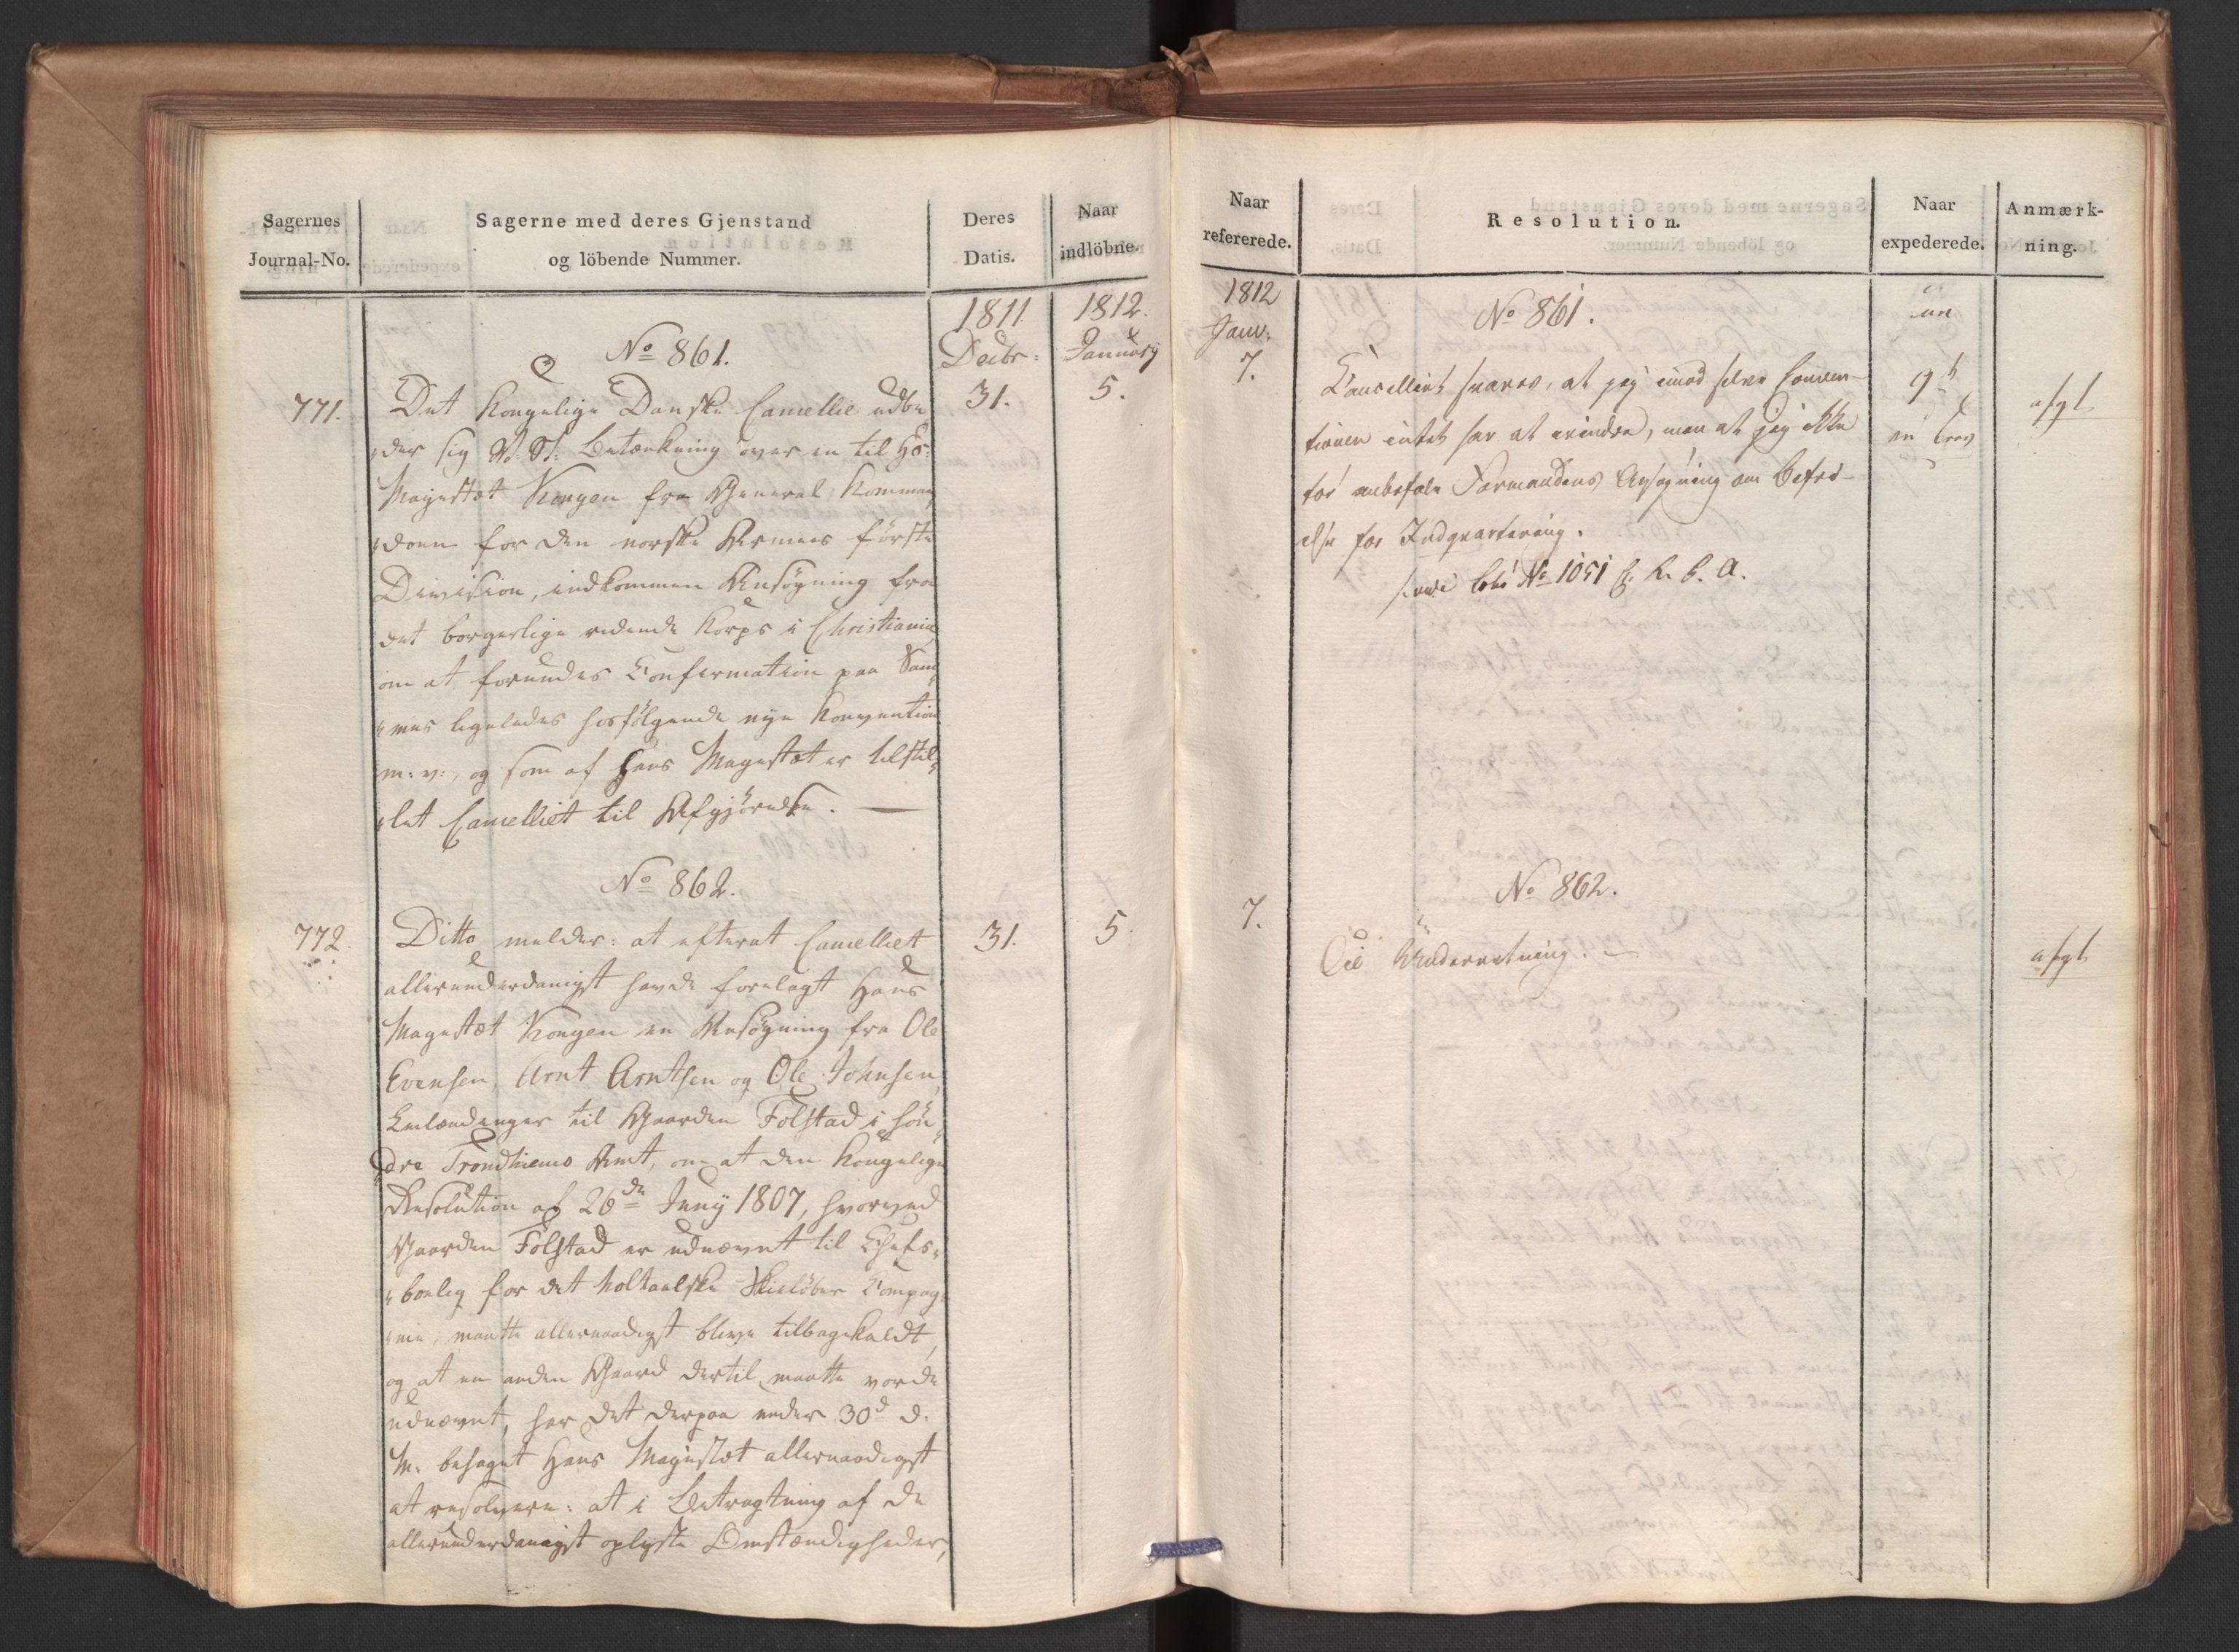 Sagernes
Journal-No.
Sagerne med deres Gjenstand
og löbende Nummer.
Deres
Datis.
Naar
indlöbne.
1811.
Decbr:
1812.
January
No 861.
771.
31.
5.
Det Kongelige Danske Cancellie udbe
der sig Betænkning over en til Hs:
Majestæt Kongen fra General Komman
doen for den norske Armees förste
Division, indkommen Ansögning fra
det borgerlige ridende Korps i Christiania
om at forundes Confirmation paa Sam
mes ligeledes hosfölgende nye Konvention
m: v:, og som af Hans Magestæt er tilstil
let Cancelliet til Afgjörelse.
No 862.
772.
31.
5.
Ditto melder: at efterat Cancelliet
allerunderdanigst havde forelagt Hans
Magestæt Kongen en Ansögning fra Ole
Evensen, Arnt Arntsen og Ole Johnsen,
Leilændinger til Gaarden Folstad i Sön
dre Trondhiems Amt, om at den Kongelige
Resolution af 26de Juny 1807, hvorved
Gaarden Folstad er udnævnt til Chefs
bolig for det Holtaalske Skielöber Compag
nie, maatte allernaadigst blive tilbagekaldt,
og at en anden Gaard dertil maatte vorde
udnævnt, har det derpaa under 30d d.
M. behaget Hans Magestæt allernaadigst
at resolvere: at i Betragtning af de
allerunderdanigst oplyste Omstændigheder,
Naar
refererede.
Resolution.
Naar
expederede.
Anmærk-
ning.
1812
Janv.
7.
No 861.
Cancelliet svares, at jeg imod selve Conven-
tionen intet har at erindre, men at jeg ikke
tør anbefale Formandens Ansøgning om Befri-
else for Indqvartering.
No 1051
9
afgt
No 862.
7.
Til Underretning.
afgt